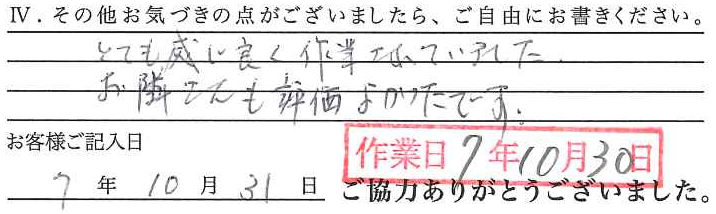 Ⅳ．その他お気づきの点がございましたら、ご自由にお書きください。
とても感じ良く作業されていました。
お隣さんも評価よかったです。
お客様ご記入日
作業日 7年10月30日
7 年 10 月 31 日 ご協力ありがとうございました。